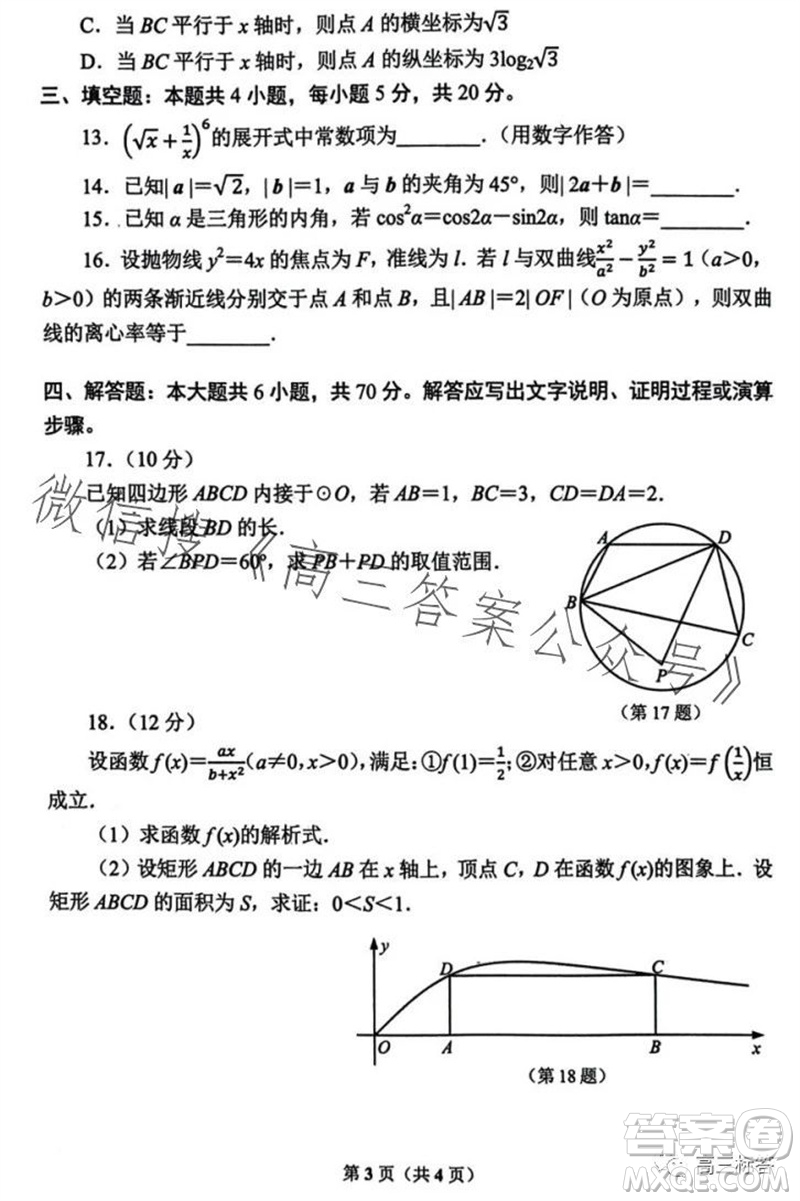 C. 当 BC 平行于 x 轴时，则点 A 的横坐标为√3
D. 当 BC 平行于 x 轴时，则点 A 的纵坐标为 3log₂√3
三、填空题：本题共 4 小题，每小题 5 分，共 20 分。
13. (√x+1/x)⁶的展开式中常数项为________.（用数字作答）
14. 已知| a |=√2，| b |=1，a 与 b 的夹角为 45°，则| 2a+b |=________.
15. 已知 α 是三角形的内角，若 cos²α=cos2α－sin2α，则 tanα=________.
16. 设抛物线 y²=4x 的焦点为 F，准线为 l. 若 l 与双曲线x²/a²－y²/b²=1（a>0，
b>0）的两条渐近线分别交于点 A 和点 B，且| AB |=2| OF |（O 为原点），则双曲
线的离心率等于________.
四、解答题：本大题共 6 小题，共 70 分。解答应写出文字说明、证明过程或演算
步骤。
17.（10 分）
已知四边形 ABCD 内接于⊙O，若 AB=1，BC=3，CD=DA=2.
（1）求线段 BD 的长.
（2）若∠BPD=60°，求 PB+PD 的取值范围.
A
D
B
C
P
（第 17 题）
微信搜《高三答案公众号》
18.（12 分）
设函数 f(x)=ax/(b+x²)(a≠0,x>0)，满足：①f(1)=1/2；②对任意 x>0，f(x)=f(1/x)恒
成立.
（1）求函数 f(x)的解析式.
（2）设矩形 ABCD 的一边 AB 在 x 轴上，顶点 C，D 在函数 f(x)的图象上. 设
矩形 ABCD 的面积为 S，求证：0<S<1.
y
D
C
O
A
B
x
（第 18 题）
第 3 页（共 4 页）
答案卷
高三标答